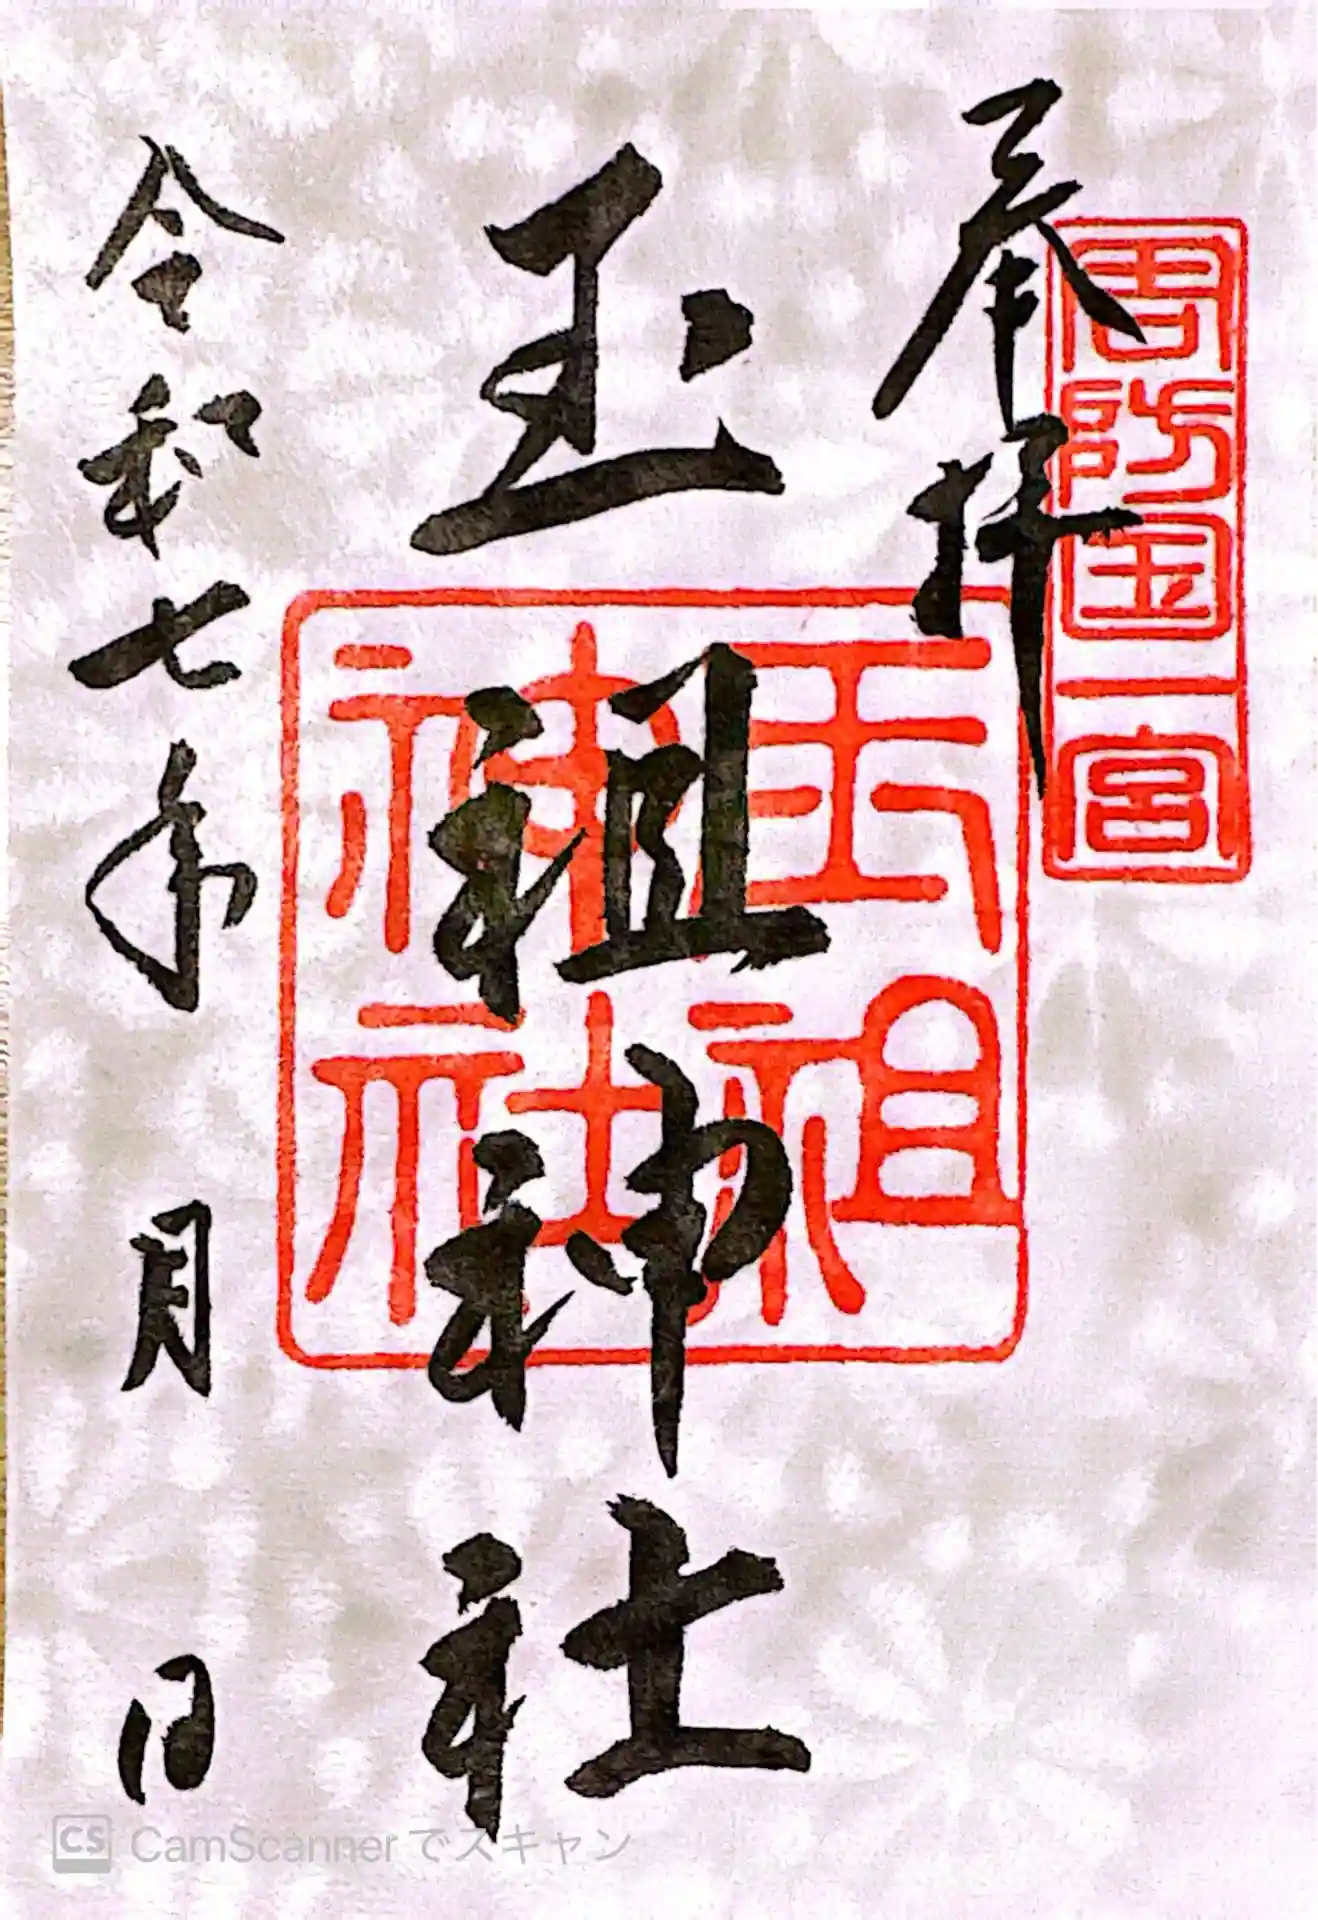 奉拝
周防国一宮
玉祖神社
玉祖
神社
令和七年 月 日
CS CamScannerでスキャン